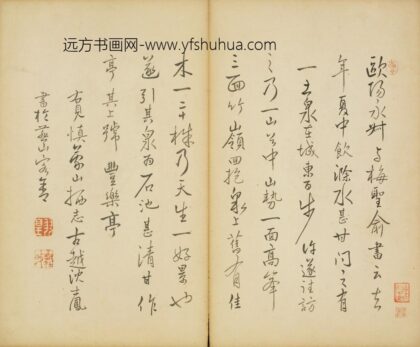 远方书画网-www.yfshuhua.com
歐陽永叔与梅聖俞書云去
年夏中飲滁水甚甘問之有
一土泉在城東百步許遂往訪
之乃一山谷中山勢一面高峯
三面竹嶺回抱泉上舊有佳
木一二十株乃天生一好景也
遂引其泉為石池甚清甘作
亭其上號豐樂亭
古越沈鳳
書於